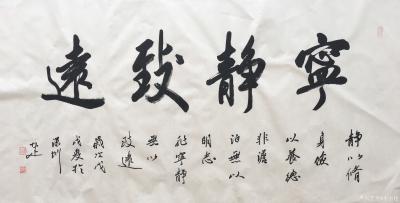 寧靜致遠
靜以修
身儉
以養德
非澹
泊無以
明志
非寧靜
無以
致遠
歲次戊
戌夏於
深圳